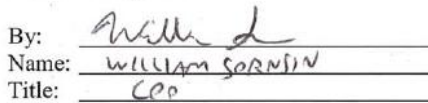 By:
Name: WILLIAM SORNSIN
Title: COO